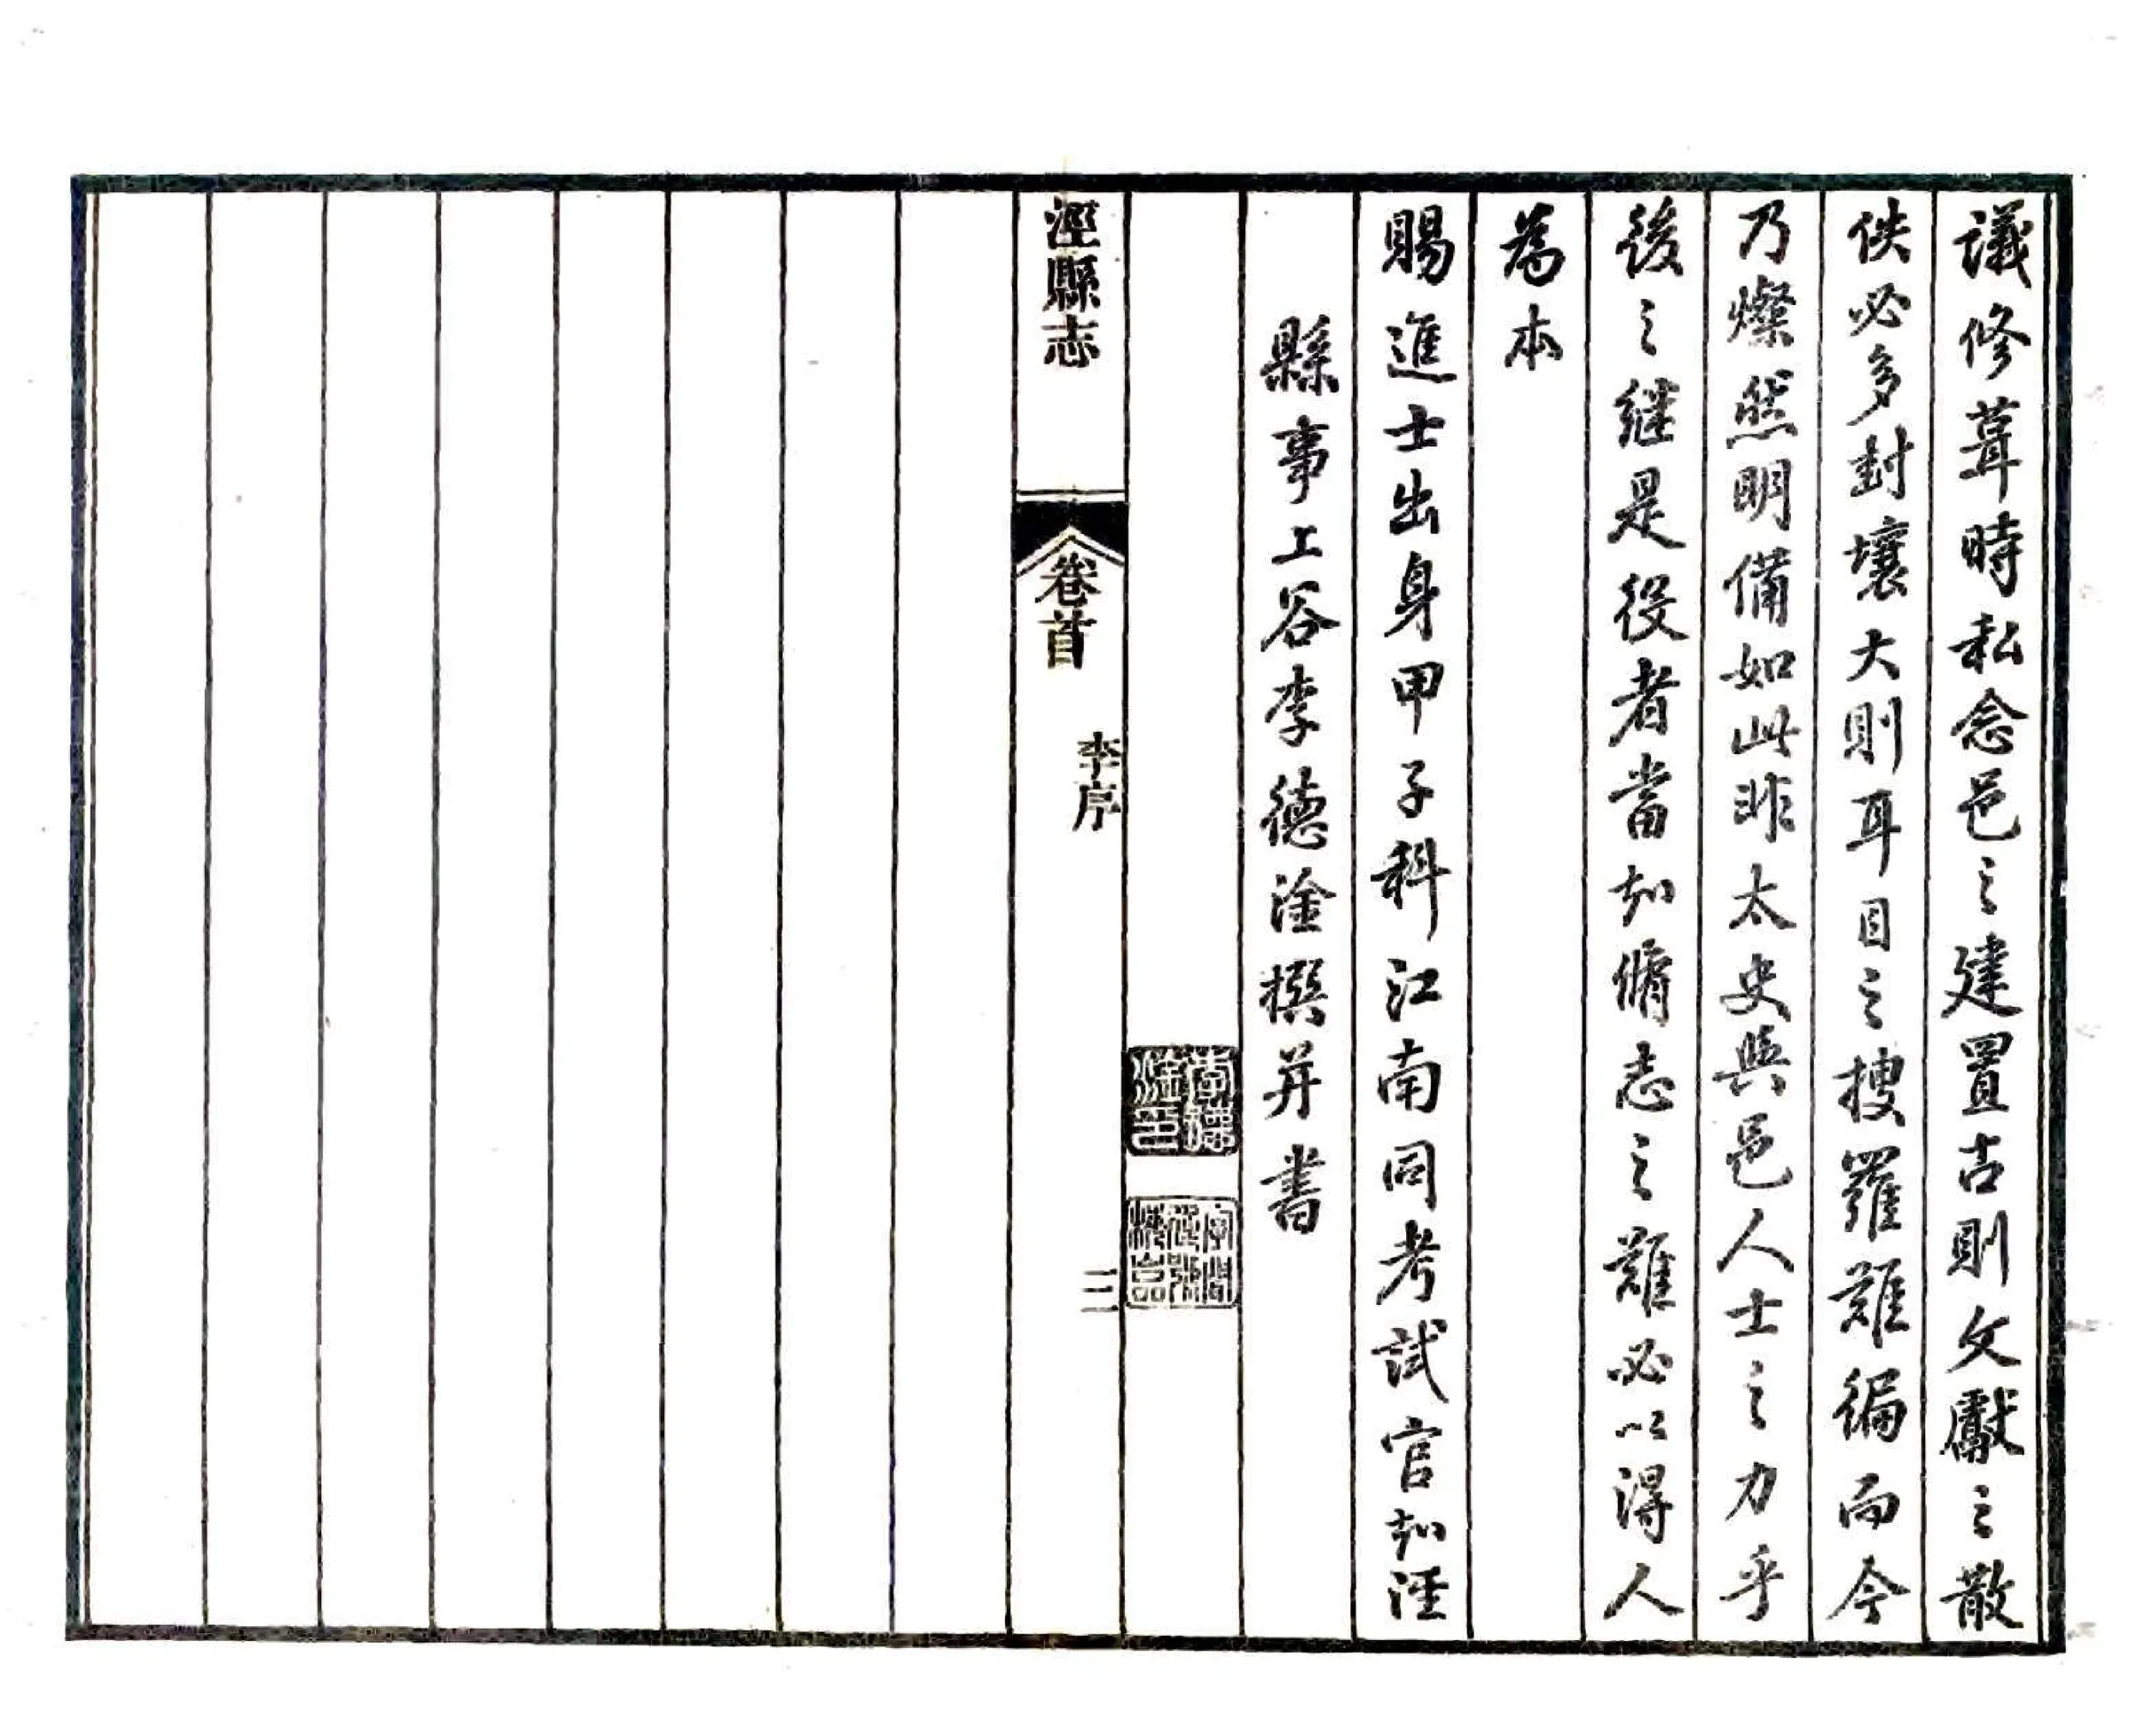 議修葺時私念邑之建置古則文獻之散
佚必多封壤大則耳目之搜羅難徧而今
乃燦然明備如此非太史與邑人士之力乎
後之继是役者當知脩志之難必以得人
為本
賜進士出身甲子科江南同考試官知涇
縣事上谷李德淦撰并書
李德淦印
涇縣志
卷首
李序
三